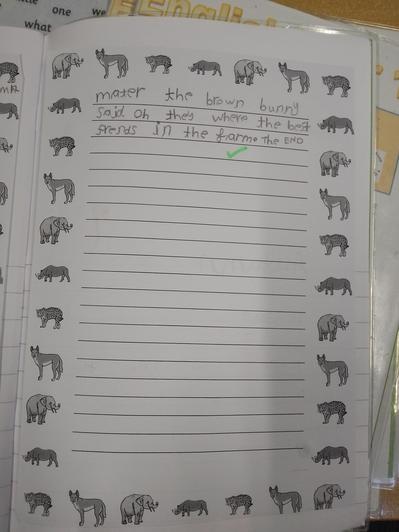 one we
what
English
mater the brown bunny
said oh they where the best
frends in the farme The END